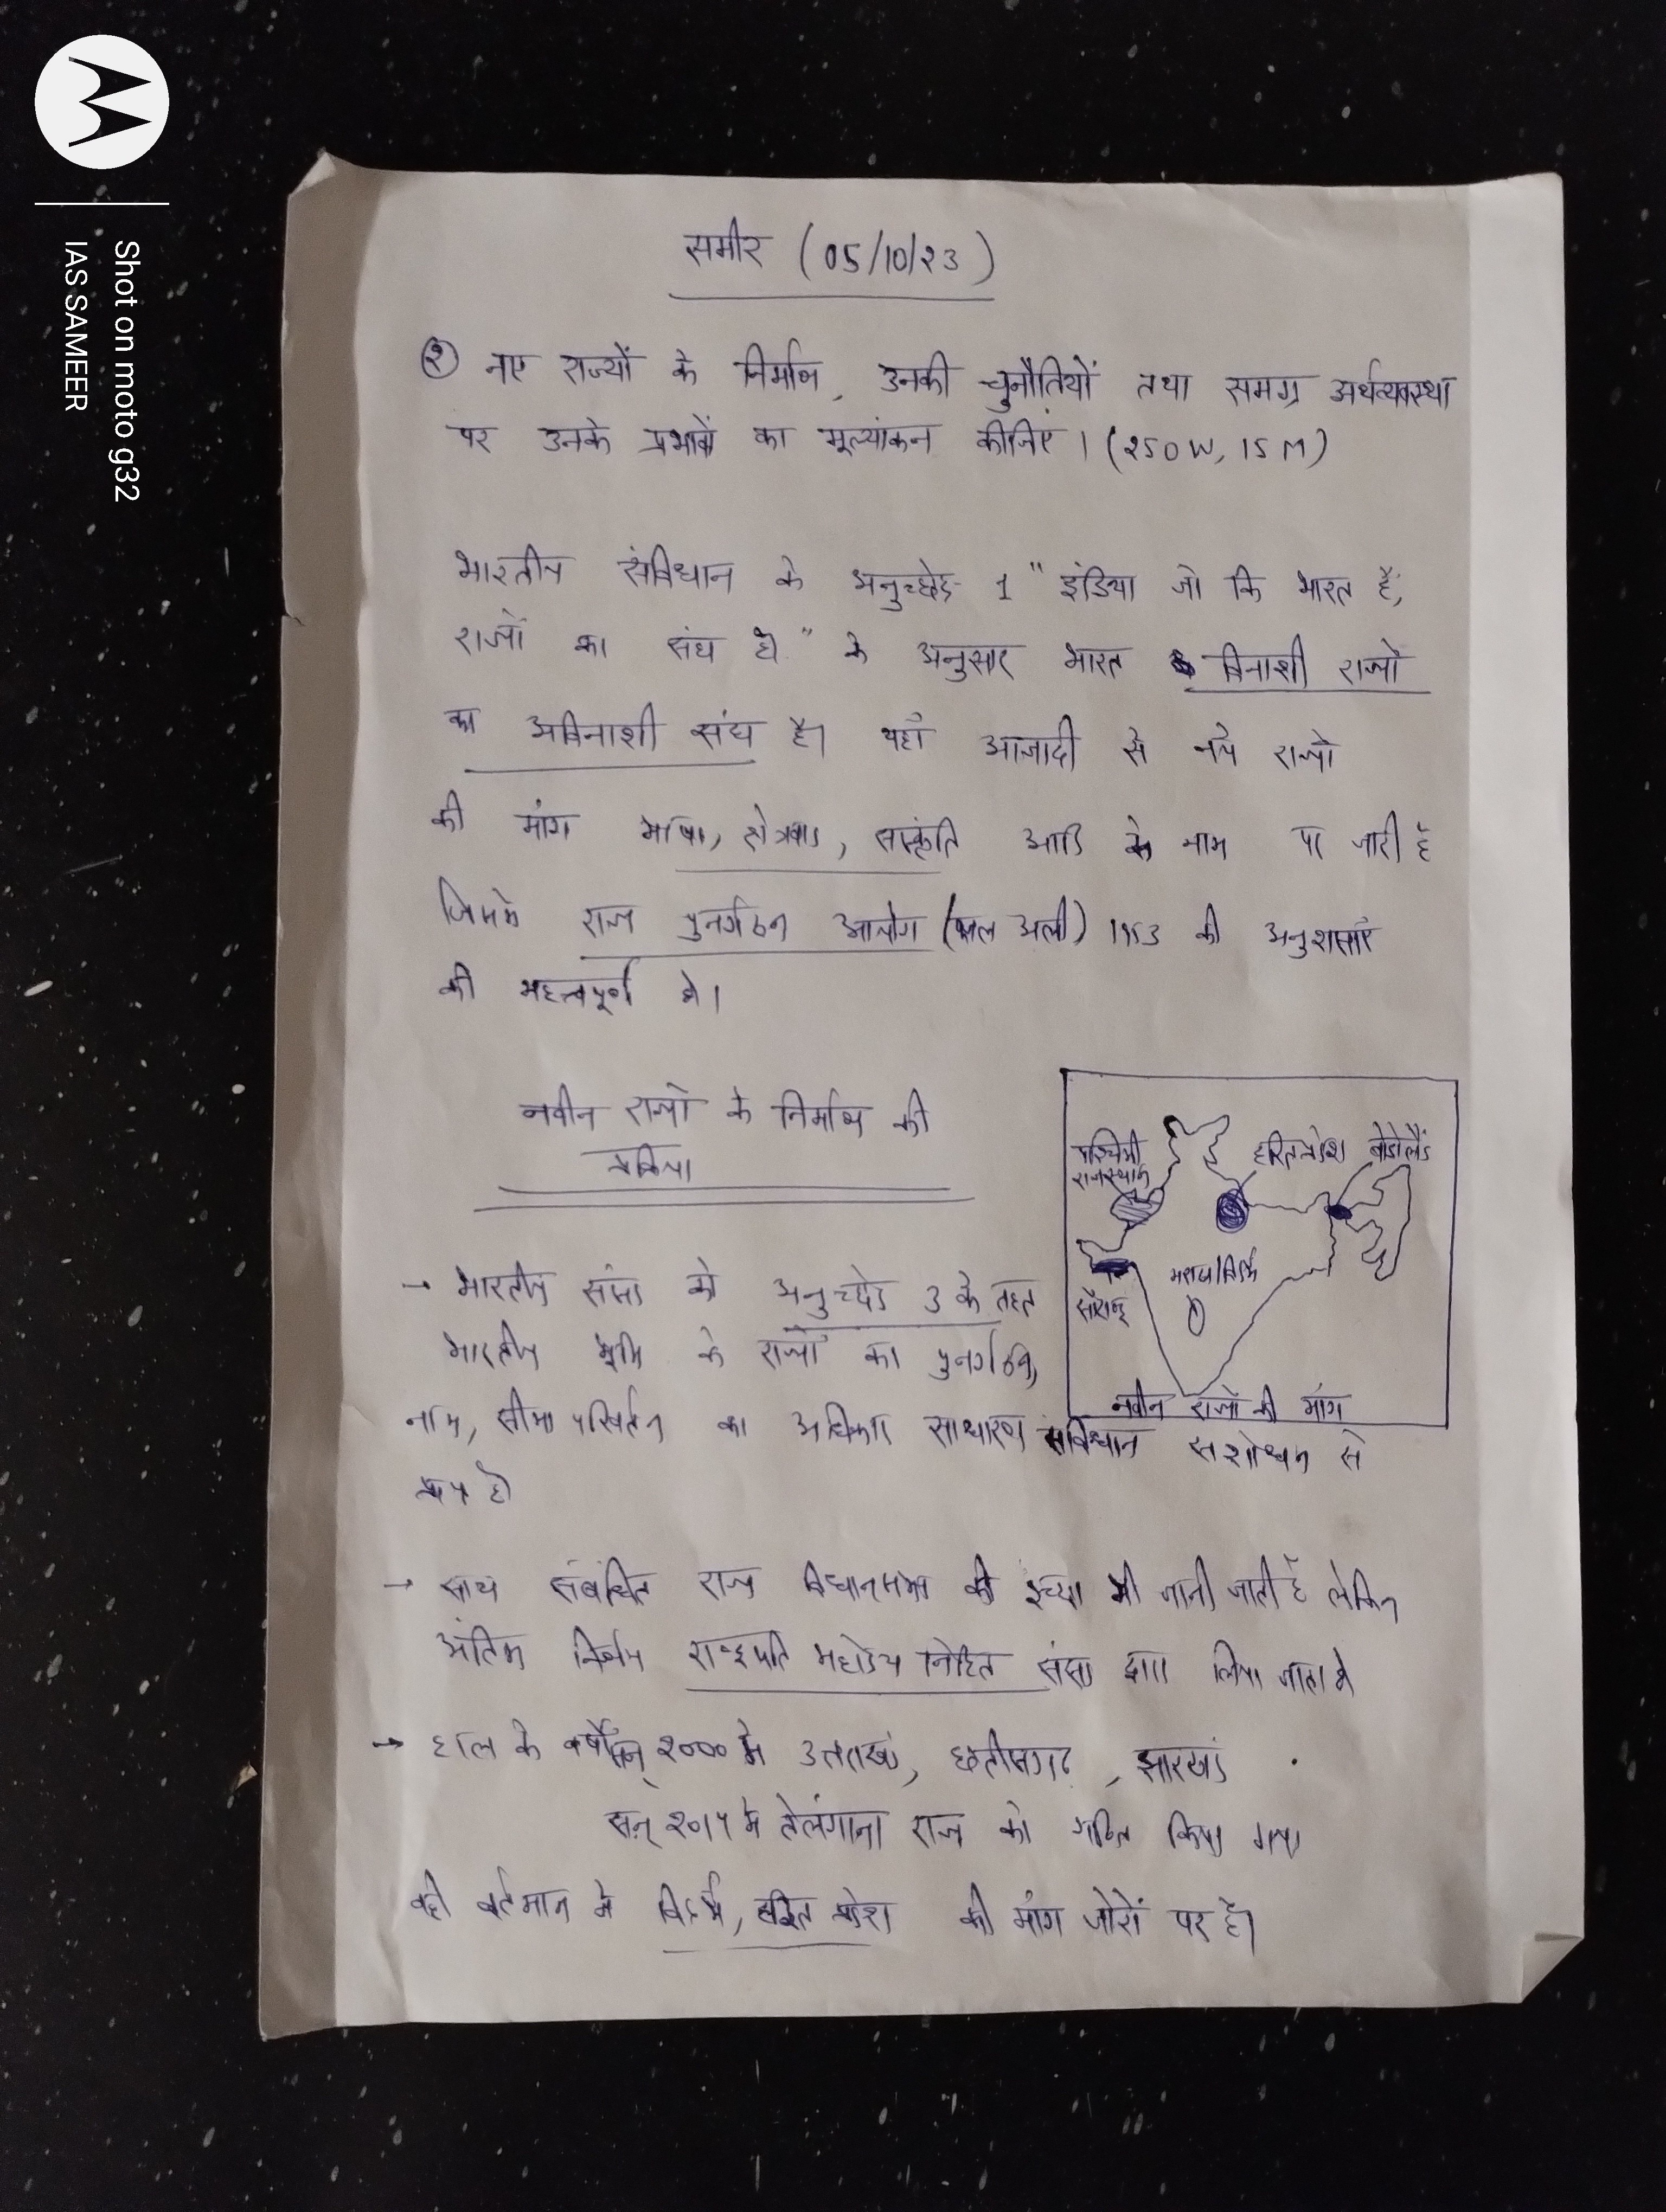 Shot on moto g32
IAS SAMEER
समीर (05/10/23)
② नए राज्यों के निर्माण, उनकी चुनौतियों तथा समग्र अर्थव्यवस्था
पर उनके प्रभावों का मूल्यांकन कीजिए । (250 W, 15 M)
भारतीय संविधान के अनुच्छेद 1 " इंडिया जो कि भारत है,
राज्यों का संघ है " के अनुसार भारत विनाशी राज्यों
का अविनाशी संघ है। यहाँ आजादी से नये राज्यों
की मांग भाषा, क्षेत्रवाद, संस्कृति आदि के नाम पर जारी है
जिसमें राज्य पुनर्गठन आयोग (फजल अली) 1953 की अनुशंसाएं
की महत्वपूर्ण है।
नवीन राज्यों के निर्माण की
प्रक्रिया
पश्चिमी
राजस्थान
हरितप्रदेश
बोडोलैंड
सौराष्ट्र
नवीन राज्यों की मांग
→ भारतीय संसद को अनुच्छेद 3 के तहत
भारतीय भूमि के राज्यों का पुनर्गठन,
नाम, सीमा परिवर्तन का अधिकार साधारण संविधान संशोधन से
प्राप्त है।
→ साथ संबंधित राज्य विधानसभा की इच्छा भी जानी जाती है लेकिन
अंतिम निर्णय राष्ट्रपति महोदय निहित संसद द्वारा लिया जाता है
→ हाल के वर्षों सन् 2000 में उत्तराखंड, छत्तीसगढ, झारखंड
सन् 2014 में तेलंगाना राज्य को गठित किया गया
वही वर्तमान में विदर्भ, हरित प्रदेश की मांग जोरों पर है।